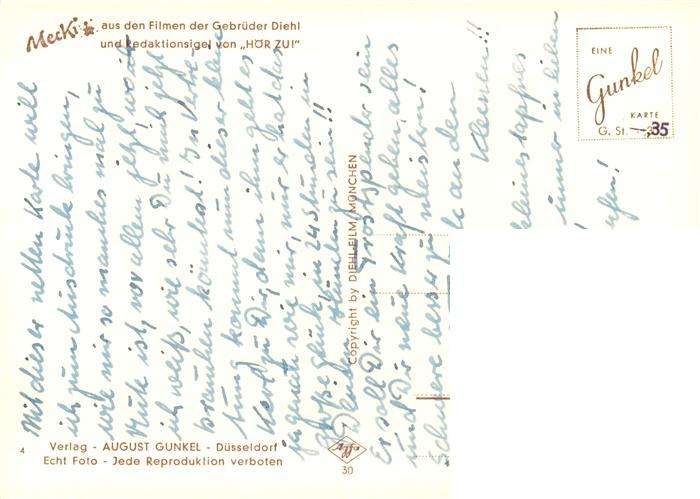 Mecki aus den Filmen der Gebrüder Diehl
und Redaktionsigel von „HÖR ZU!"
EINE
Gunkel
KARTE
G. St. 35
Mit dieser netten Karte will
ich zum Ausdruck bringen,
wie mir so manches mal zu
Mute ist, vor allem jetzt, wo
ich weiß, wie sehr Du mich jetzt
brauchen könntest! In
kommt nun dieser kleine
Kerl zu Dir, denn ihm geht es
genau wie mir, nur er hat das
große Glück in 24 Stunden in
zu sein!!
Er soll Dir ein sein
und Dir neue Kraft geben, alles
Schwere besser zu meistern!
an den
Kleinen!!
lieben
Copyright by DIEHL-FILM, MÜNCHEN
4
Verlag - AUGUST GUNKEL - Düsseldorf
Echt Foto - Jede Reproduktion verboten
Agfa
30